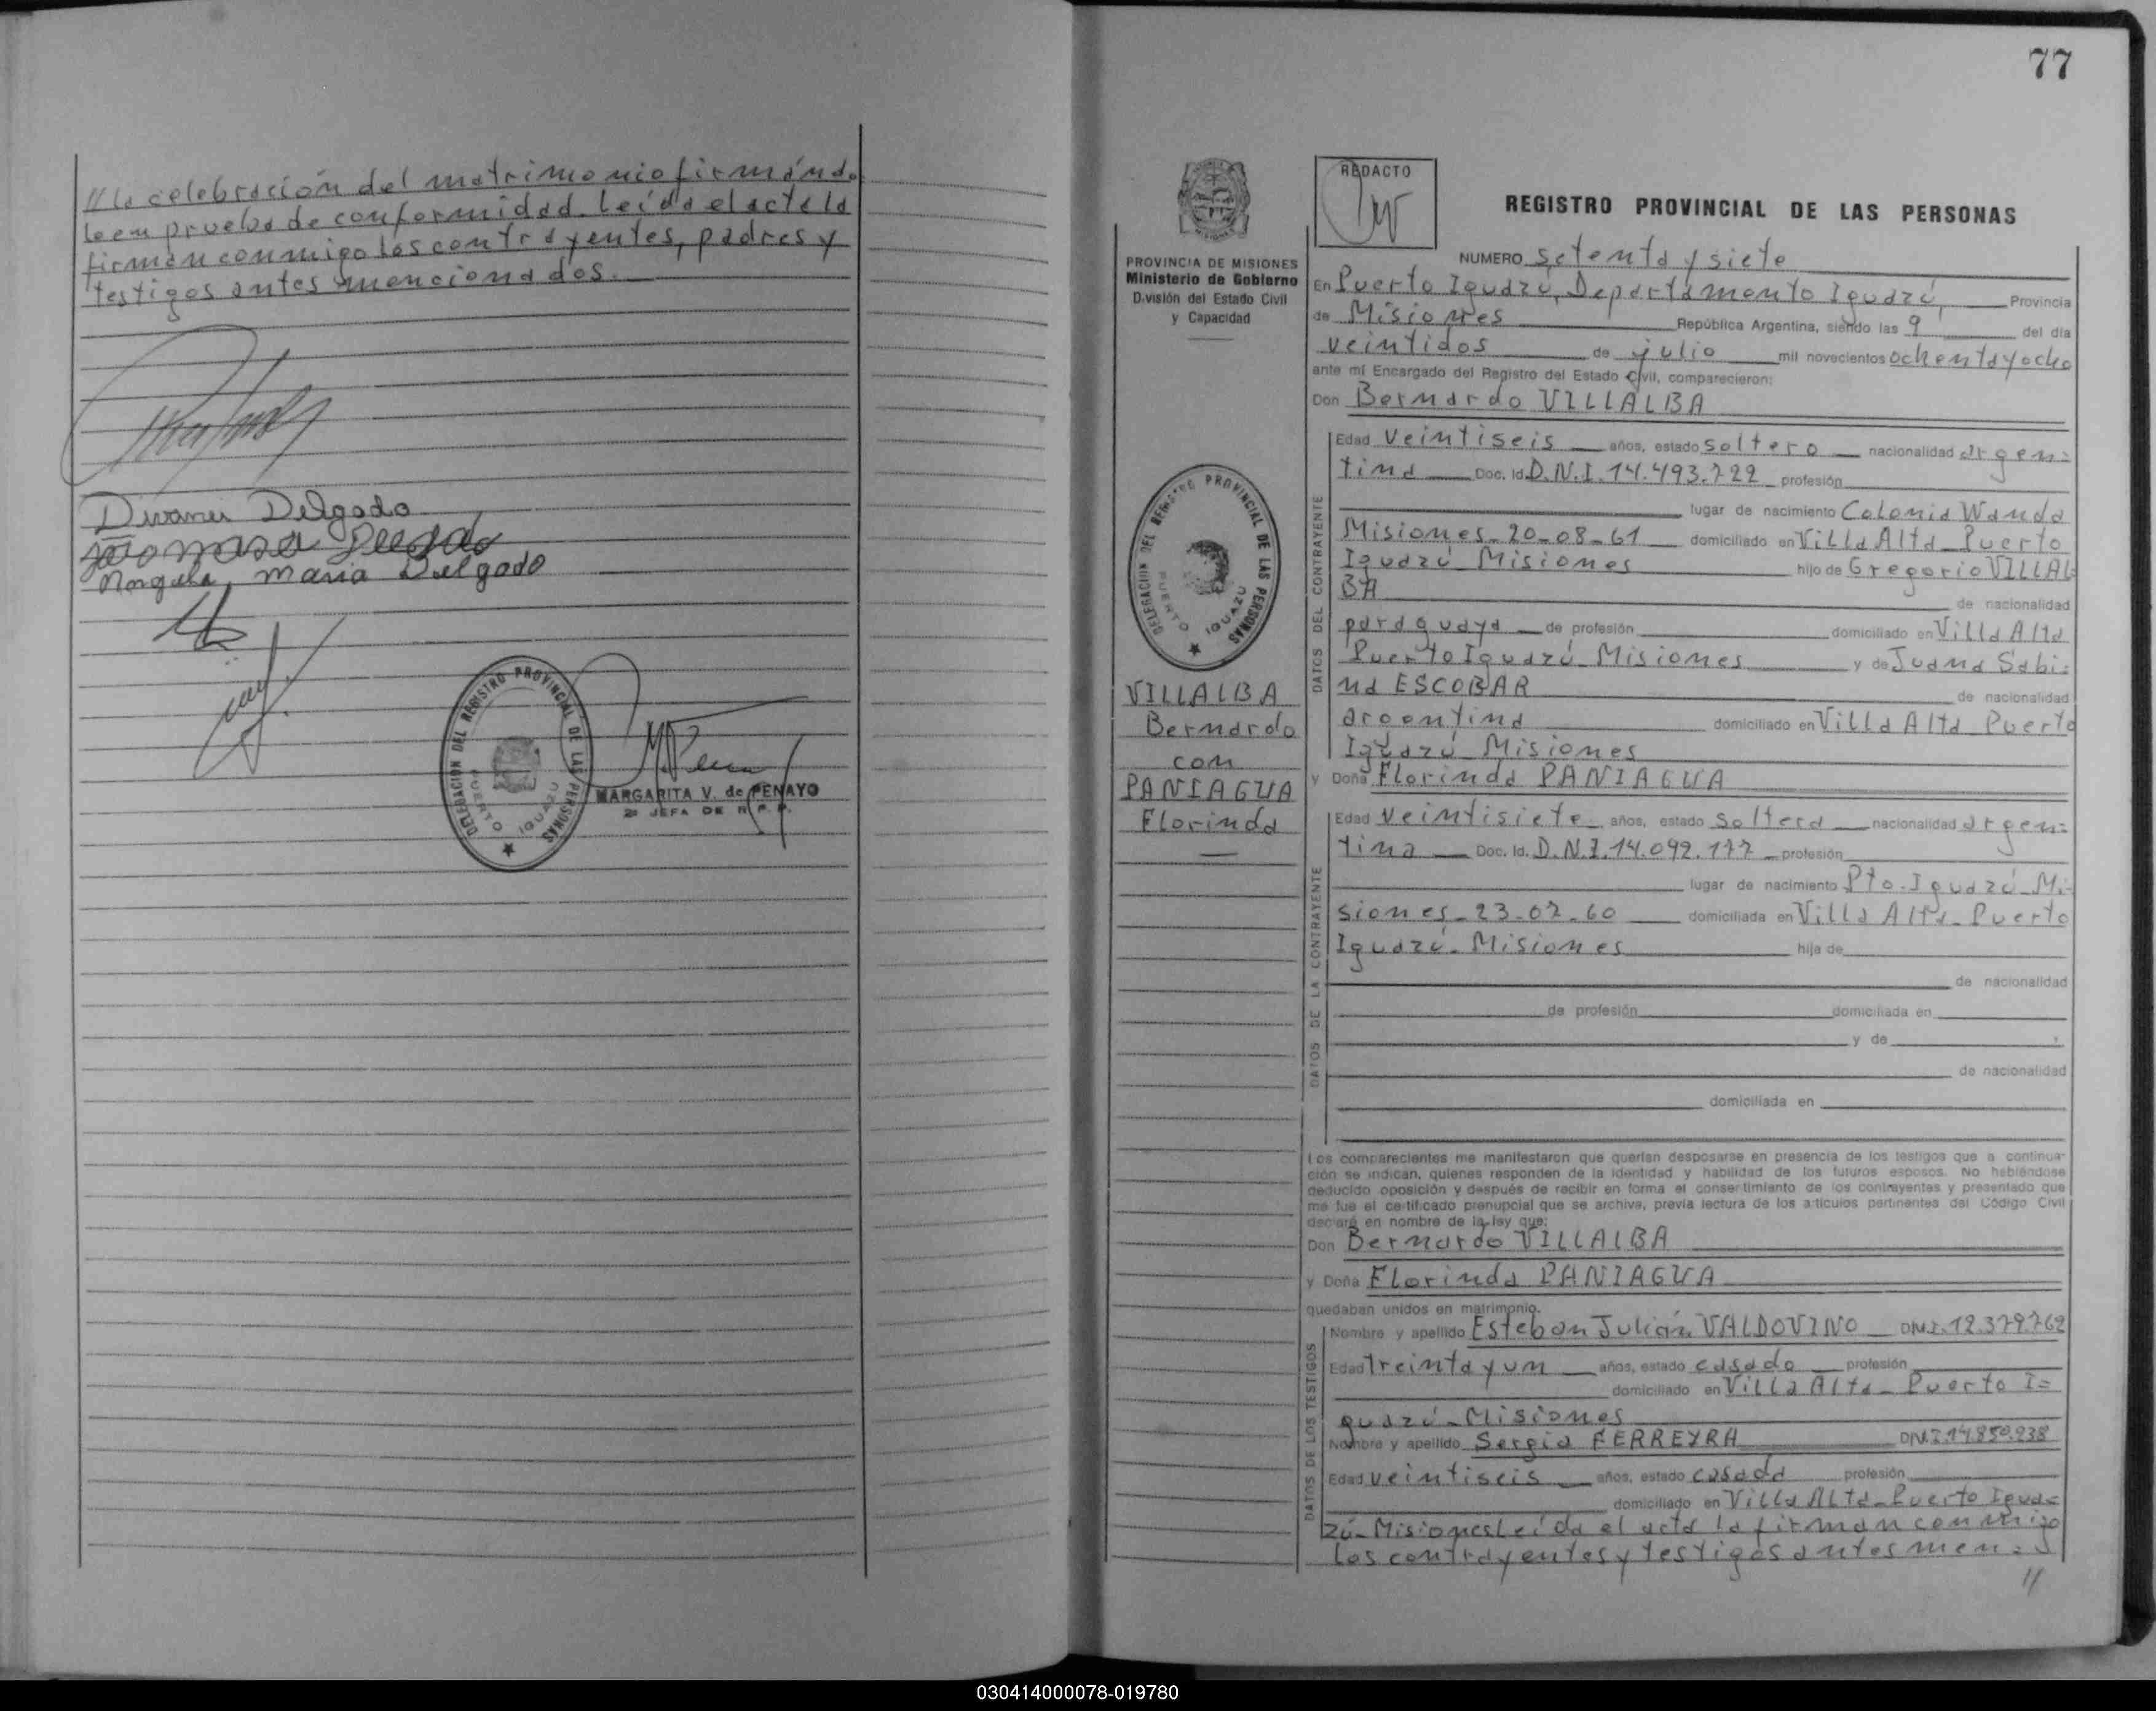 77
// la celebración del matrimonio firmando
la en prueba de conformidad. Leída el acta la
firman conmigo los contrayentes, padres y
testigos antes mencionados.
Delgado
Maria Delgado
DELEGACION DEL REGISTRO PROVINCIAL DE LAS PERSONAS
PUERTO IGUAZU
MARGARITA V. de PENAYO
2ª JEFA DE R. P. P.
MISIONES
PROVINCIA DE MISIONES
Ministerio de Gobierno
División del Estado Civil
y Capacidad
DELEGACION DEL REGISTRO PROVINCIAL DE LAS PERSONAS
PUERTO IGUAZU
VILLALBA
Bernardo
con
PANIAGUA
Florinda
REDACTO
REGISTRO PROVINCIAL DE LAS PERSONAS
NUMERO setenta y siete
En Puerto Iguazú, Departamento Iguazú, Provincia
de Misiones República Argentina, siendo las 9 del día
veintidos de julio mil novecientos ochenta y ocho
ante mí Encargado del Registro del Estado Civil, comparecieron:
Don Bernardo VILLALBA
DATOS DEL CONTRAYENTE
Edad veintiseis años, estado soltero nacionalidad argen=
tina Doc. Id. D.N.I. 14.493.722 profesión
lugar de nacimiento Colonia Wanda
Misiones-20-08-61 domiciliado en Villa Alta-Puerto
Iguazú-Misiones hijo de Gregorio VILLAL
BA
de nacionalidad
paraguaya de profesión domiciliado en Villa Alta
Puerto Iguazú-Misiones y de Juana Sabi=
na ESCOBAR
de nacionalidad
argentina domiciliado en Villa Alta-Puerto
Iguazú-Misiones
y Doña Florinda PANIAGUA
DATOS DE LA CONTRAYENTE
Edad veintisiete años, estado soltera nacionalidad argen=
tina Doc. Id. D.N.I. 14.092.177 profesión
lugar de nacimiento Pto. Iguazú-Mi-
siones-23-07-60 domiciliada en Villa Alta-Puerto
Iguazú-Misiones hija de
de nacionalidad
de profesión domiciliada en
y de
de nacionalidad
domiciliada en
Los comparecientes me manifestaron que querían desposarse en presencia de los testigos que a continua-
ción se indican, quienes responden de la identidad y habilidad de los futuros esposos. No habiéndose
deducido oposición y después de recibir en forma el consentimiento de los contrayentes y presentado que
me fue el certificado prenupcial que se archiva, previa lectura de los artículos pertinentes del Código Civil
declaré en nombre de la ley que:
Don Bernardo VILLALBA
y Doña Florinda PANIAGUA
quedaban unidos en matrimonio.
DATOS DE LOS TESTIGOS
Nombre y apellido Esteban Julián VALDOVINO DNI.12.379.762
Edad treinta y un años, estado casado profesión
domiciliado en Villa Alta-Puerto I=
guazú-Misiones
Nombre y apellido Sergia FERREYRA DNI.14.850.238
Edad veintiseis años, estado casada profesión
domiciliado en Villa Alta-Puerto Igua=
zú-Misiones Leída el acta la firman conmigo
los contrayentes y testigos antes men=
//
030414000078-019780